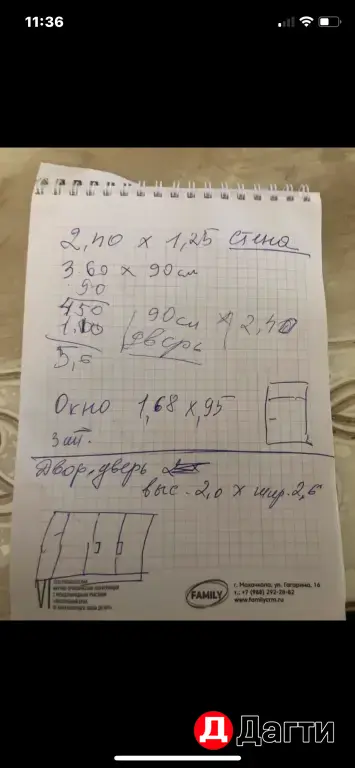 11:36
2,40 х 1,25 Стена
3 60 х 90 см
90
450
90 см х 2,40
дверь
5,6
Окно 1,68 х,95
3 шт.
Двор. дверь
выс. 2,0 х шир. 2,6
FAMILY
г. Махачкала, ул. Гагарина, 16
т.: +7 (988) 292-28-82
www.familycrm.ru
Дагти